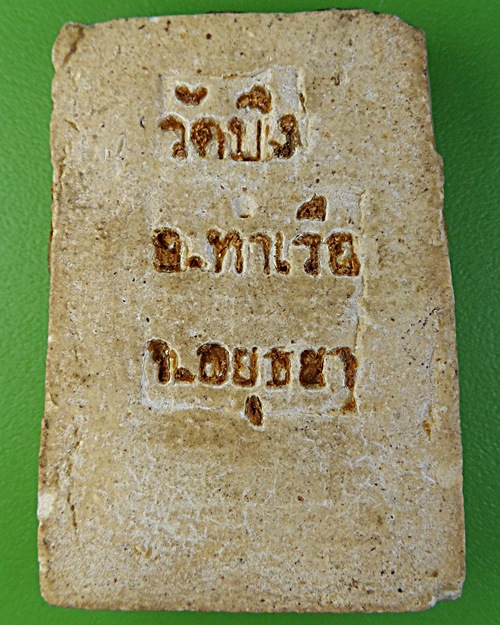 วัดบึง
อ.ท่าเรือ
จ.อยุธยา